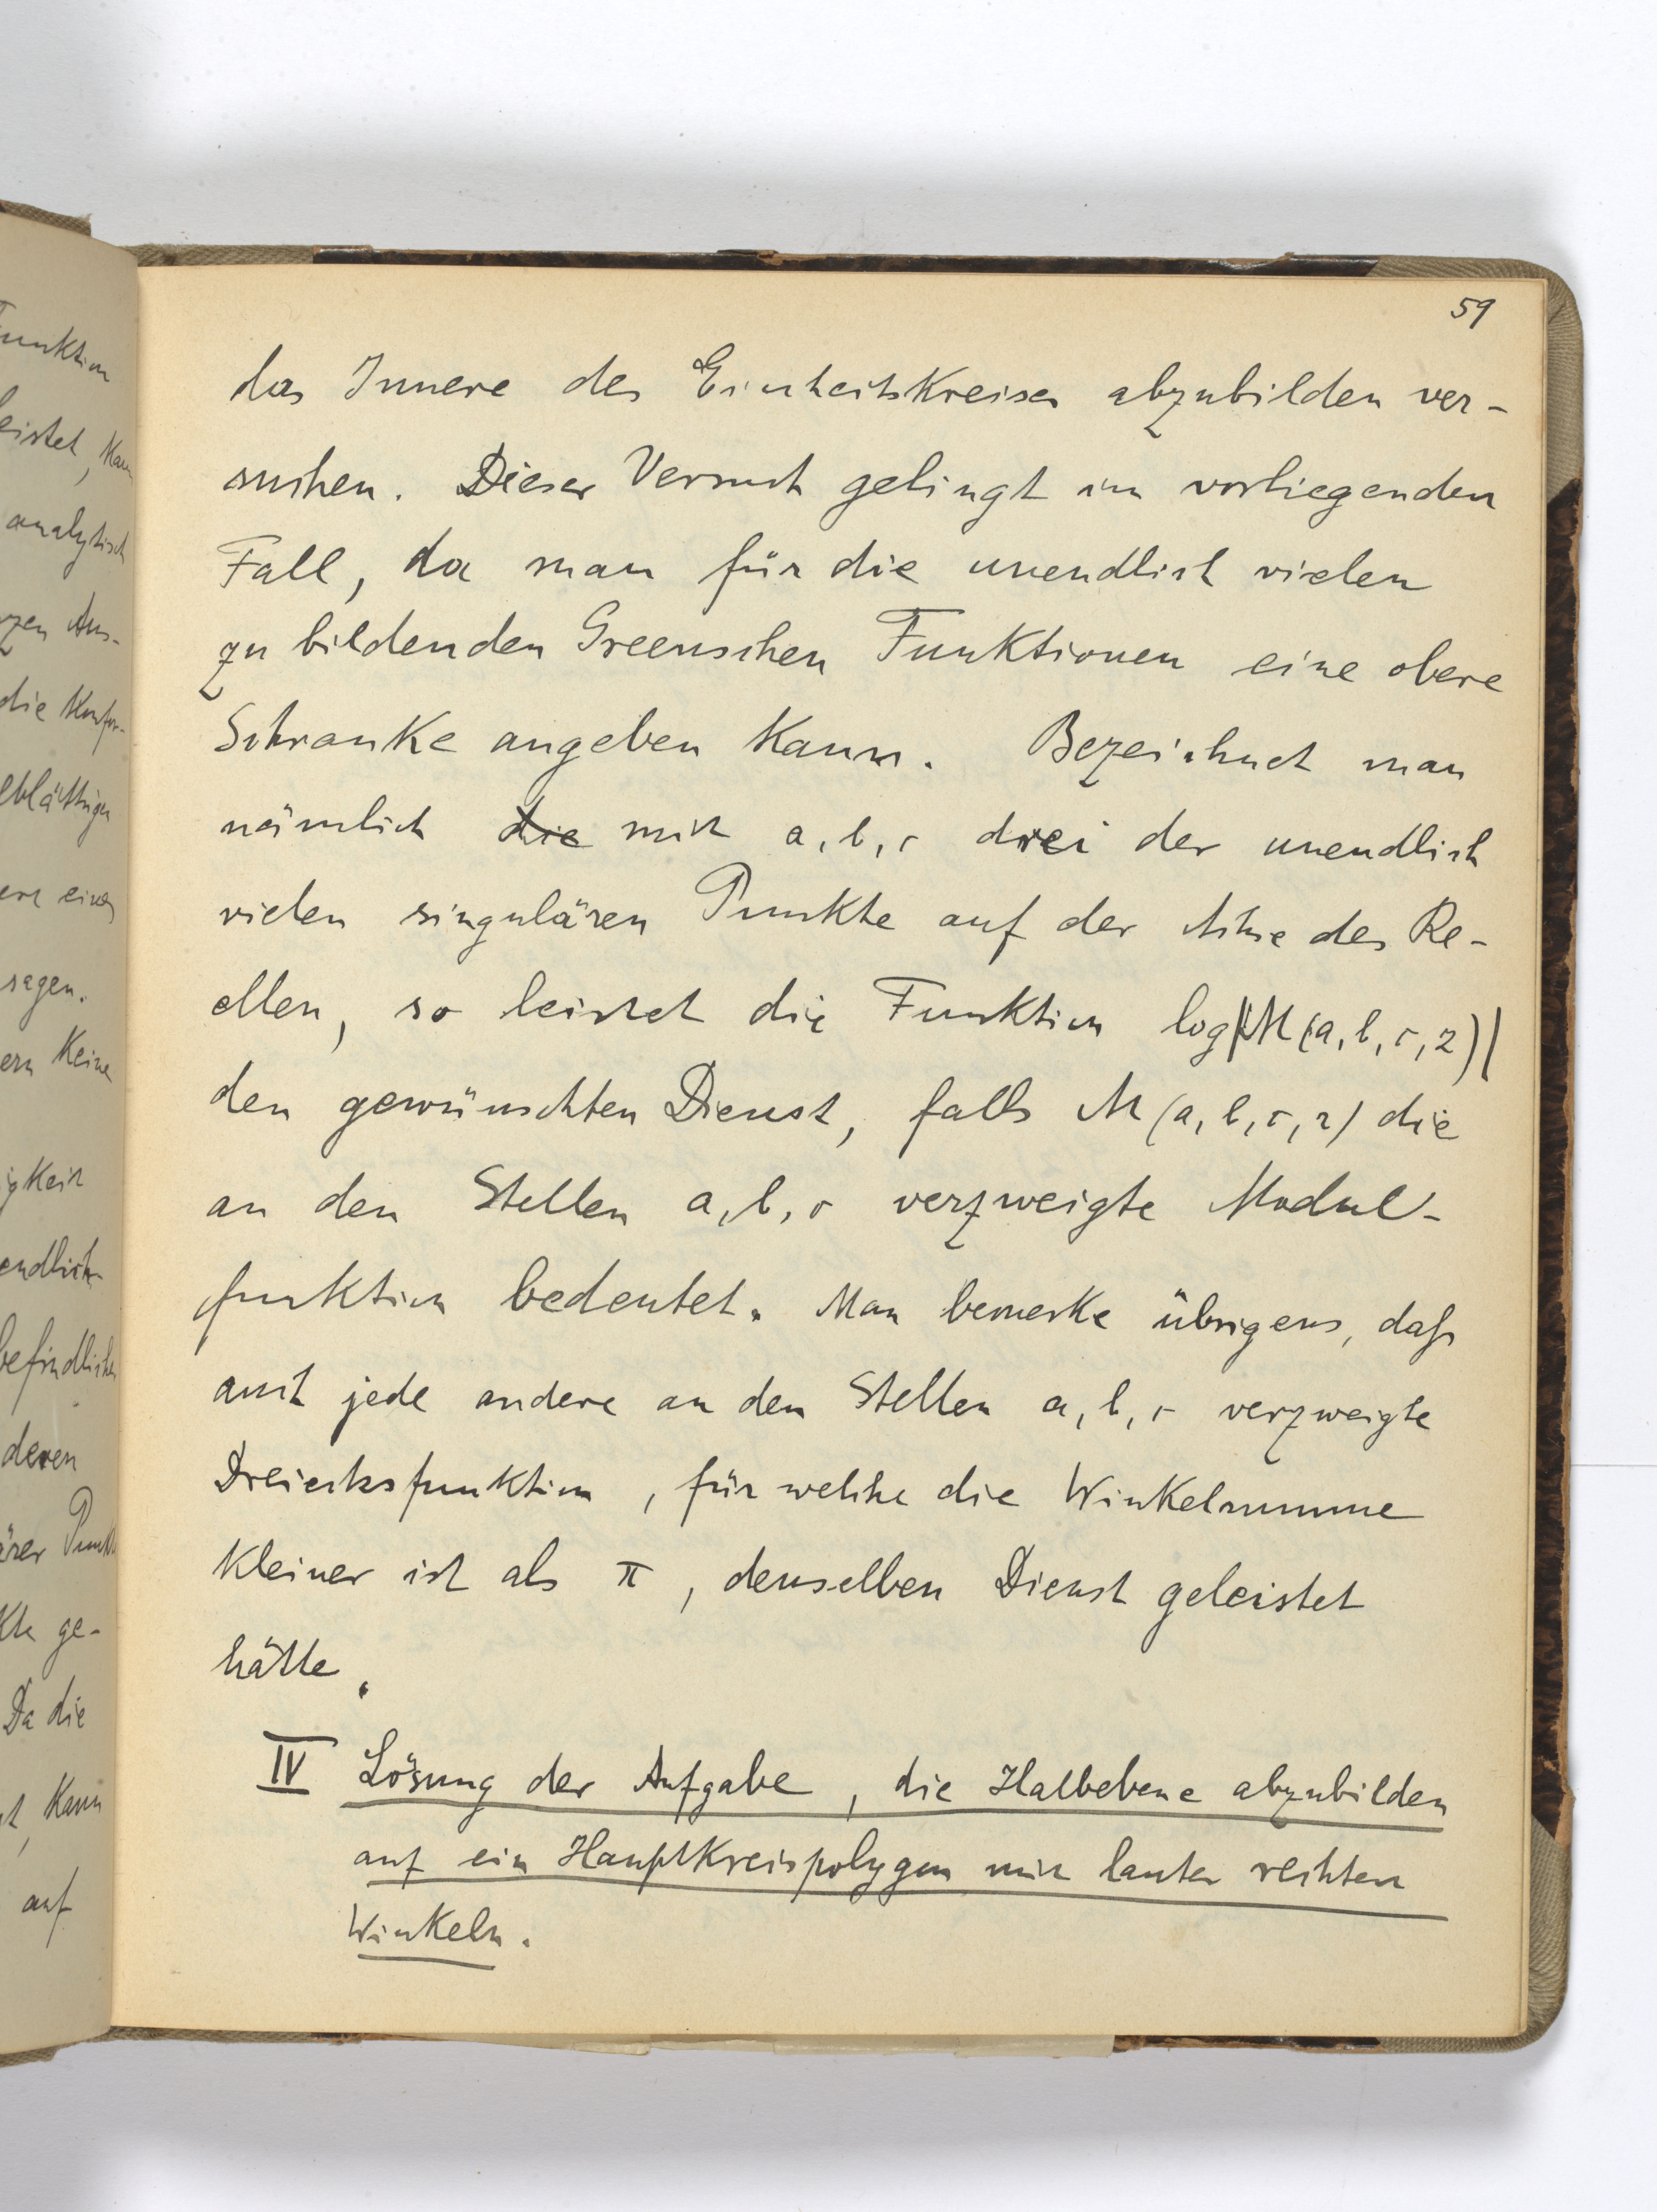 59
das Innere des Einheitskreises abzubilden ver-
suchen. Dieser Versuch gelingt im vorliegenden
Fall, da man für die unendlich vielen
zu bildenden Greenschen Funktionen eine obere
Schranke angeben kann. Bezeichnet man
nämlich die mit a, b, c drei der unendlich
vielen singulären Punkte auf der Achse des Re-
ellen, so leistet die Funktion log|M(a, b, c, z)|
den gewünschten Dienst, falls M(a, b, c, z) die
an den Stellen a, b, c verzweigte Modul-
funktion bedeutet. Man bemerke übrigens, daß
auch jede andere an den Stellen a, b, c verzweigte
Dreiecksfunktion, für welche die Winkelsumme
kleiner ist als π, denselben Dienst geleistet
hätte.
IV Lösung der Aufgabe, die Halbebene abzubilden
auf ein Hauptkreispolygon mit lauter rechten
Winkeln.
unktion
eistet, kann
analytisch
zen Aus-
die Konfor-
blättrigen
ere eines
sagen.
ern keine
igkeit
endlich
befindlichen
deren
ärer Punkt
kte ge-
Da die
t, kann
auf